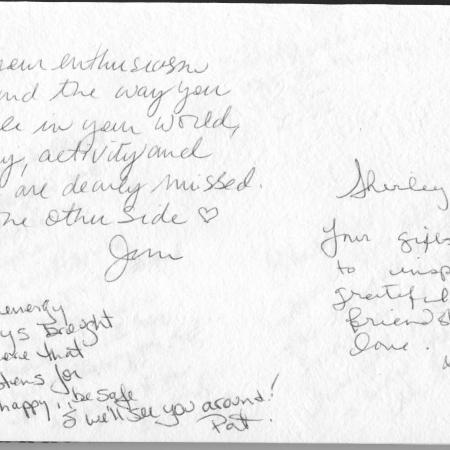 your enthusiasm
and the way you
in your world,
activity and
are dearly missed.
other side ♡
Jam
energy
Brought
that
for
happy, be safe
& we'll see you around!
Pat.
Sherley
Your gifts
to insp
grateful
friends
love.